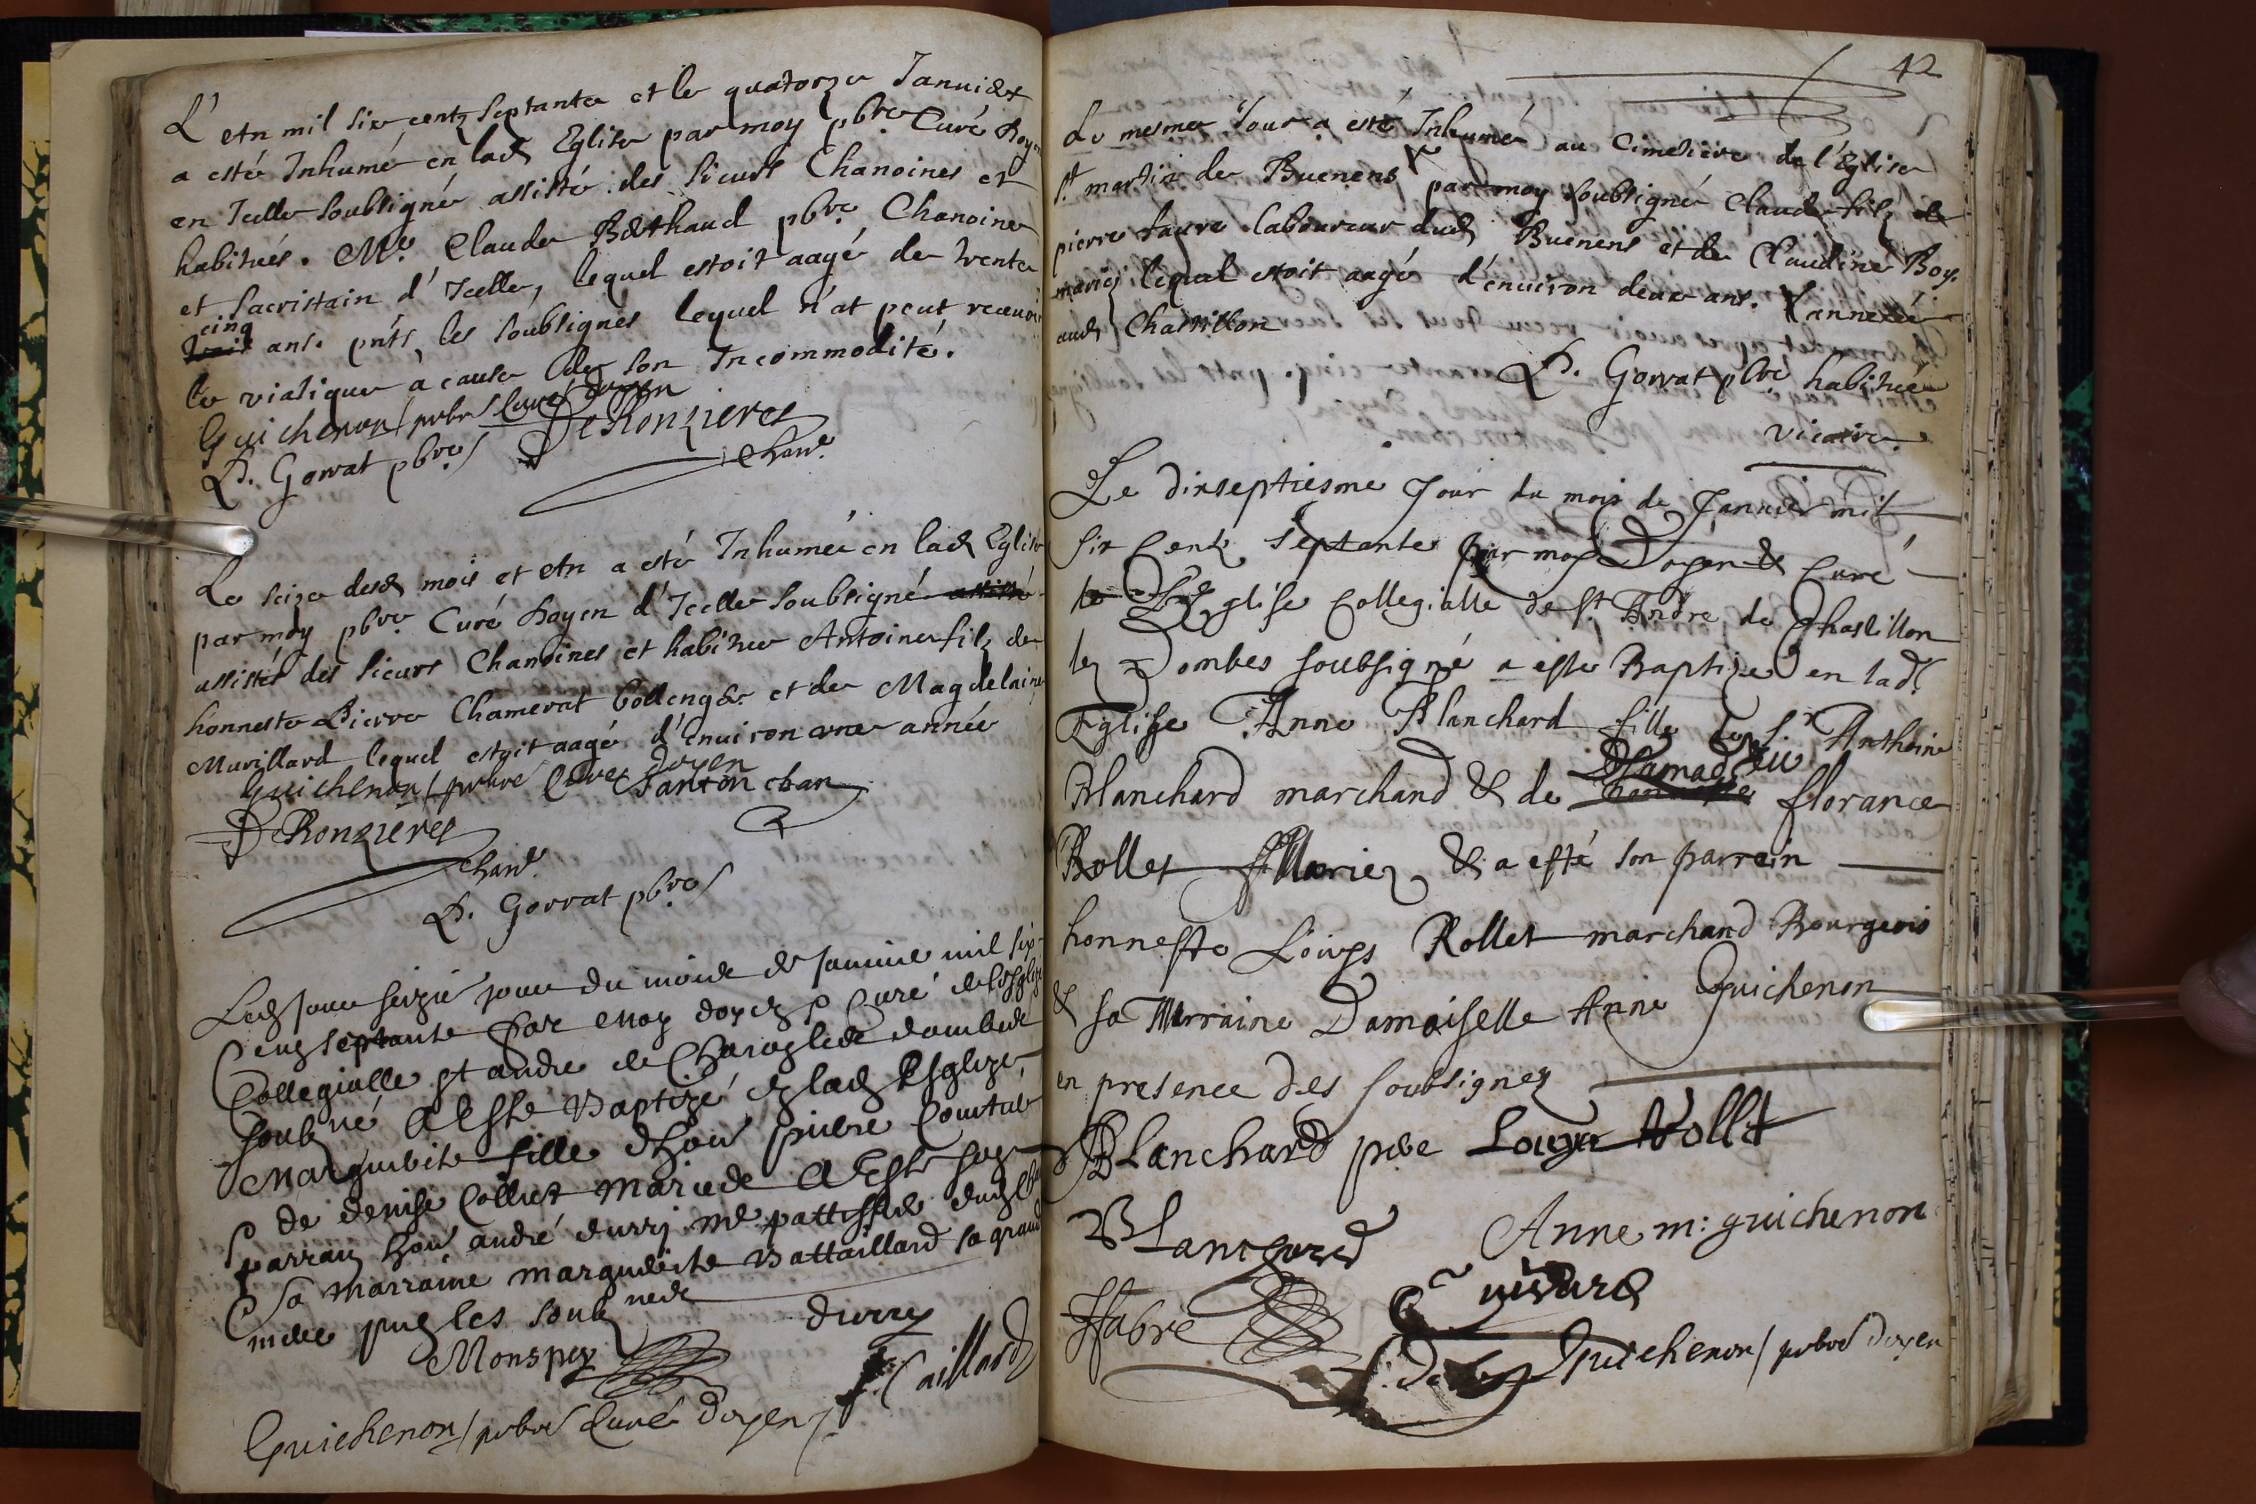 L'An mil six centz septante et le quatorze Januier
a esté Inhumé en lad Eglise par moy pbre Curé Doyen
en Icelle soubsigné assisté des sieurs Chanoines et
habitués. Me Claude Berthaud pbre Chanoine
et sacristain d'Icelle, lequel estoit aagé de trente
cinq
ans. pnts les soubsignes lequel n'at peut receuoir
le viatique à cause de son Incommodité.
Guichenon / pbre Curé doyen
DeRonzieres
P. Gorrat pbre
chane
Le seize desd mois et An a esté Inhumé en lad Eglise
par moy pbre Curé Doyen d'Icelle soubsigné assisté
assisté des sieurs Chanoines et habitue Antoine filz de
honneste Pierre Chamerat bollenger et de Magdelaine
Murillard lequel estoit aagé d'enuiron vne année
Guichenon / prbre Curé doyen
Panton chan
DeRonzieres
chane
P. Gorrat pbre
Led jour seizie jour du mois de januier mil six
Cens septante par moy doyen & Curé de lesglize
Collegialle st andre de
soubne a Este Baptizé en lad Esglize
Marguerite fille dhon pierre
& de denise Colliet mariede a Este son
parrain hon andré durry md pattissier dud
& sa marraine marguerite Battaillard sa grand
mere les soubnede
durry
Monspey
Caillard
Guichenon / prbre Curé doyen
42
Le mesme Jour a esté Inhumé au Cimetiere de l'Eglise
st martin de Buenens par moy soubsigné Claude filz de
pierre faure laboureur dud Buenens et de Claudine Boy
mariez lequel estoit aagé d'enuiron deux ans. annexé
aud Chastillon
P. Gorrat pbre habitué
vicaire
Le dixseptiesme Jour du mois de Januier mil
six Centz septante par moy Doyen & Curé
de L'Eglise Collegialle de st Andre de Chastillon
les Dombes soubsigné a este Baptizé en lad
Eglise Anne Blanchard fille de sr Anthoine
Blanchard marchand & de florance
Rollet Mariez & a esté son parrain
honneste Louys Rollet marchand Bourgeois
& sa Marraine Damoiselle Anne Guichenon
en presence des soubsignez
Blanchard pere Louys Rollet
Blanchard
Anne m: guichenon
ffabre
Guichenon / prbre doyen